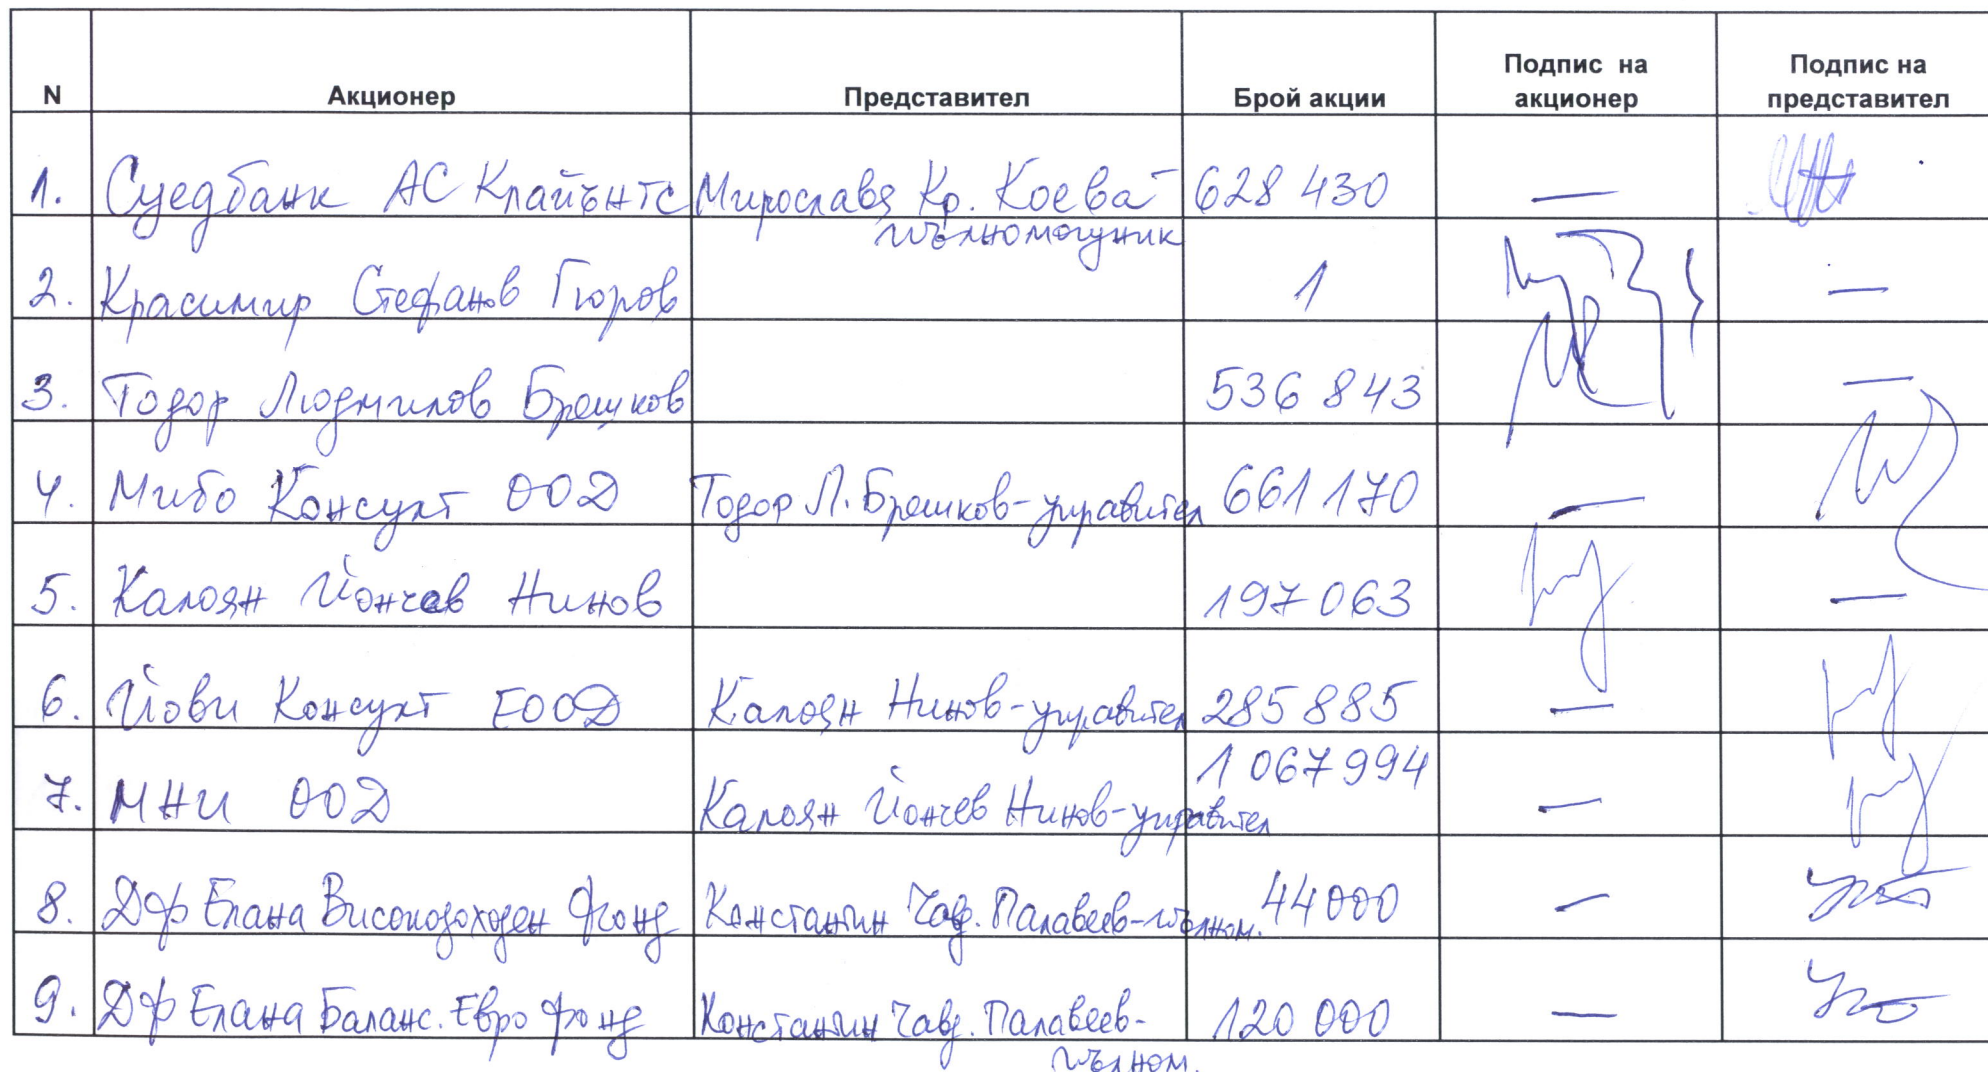 N Акционер Представител Брой акции Подпис на акционер Подпис на представител
1. Суедбанк АС Клайънтс Мирослава Кр. Коева - 628 430 —
пълномощник
2. Красимир Стефанов Гюров 1 —
3. Тодор Людмилов Брешков 536 843 —
4. Мибо Консулт ООД Тодор Л. Брешков - управител 661 170 —
5. Калоян Йончев Нинов 197 063 —
6. Йови Консулт ЕООД Калоян Нинов - управител 285 885 —
7. МНИ ООД Калоян Йончев Нинов - управител 1 067 994 —
8. ДФ Елана Високодоходен Фонд Константин Чавд. Палавеев - пълном. 44 000 —
9. ДФ Елана Баланс. Евро фонд Константин Чавд. Палавеев - 120 000 —
пълном.